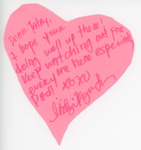 Dear John,
I hope your
doing well up there!
Keep watching out for
every one here especially
Dad! XOXO